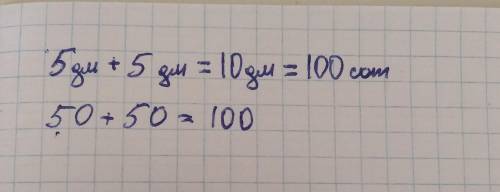 5дм + 5 дм = 10дм = 100 сот
50 + 50 = 100